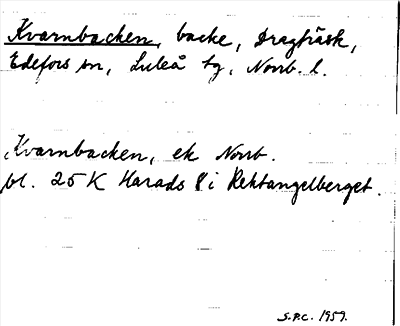 Kvarnbacken, backe, Dragträsk,
Edefors sn, Luleå tg, Norrb. l.
Kvarnbacken, ek Norrb.
bl. 25 K Harads 8 i Rektangelberget.
S.P.C. 1959.